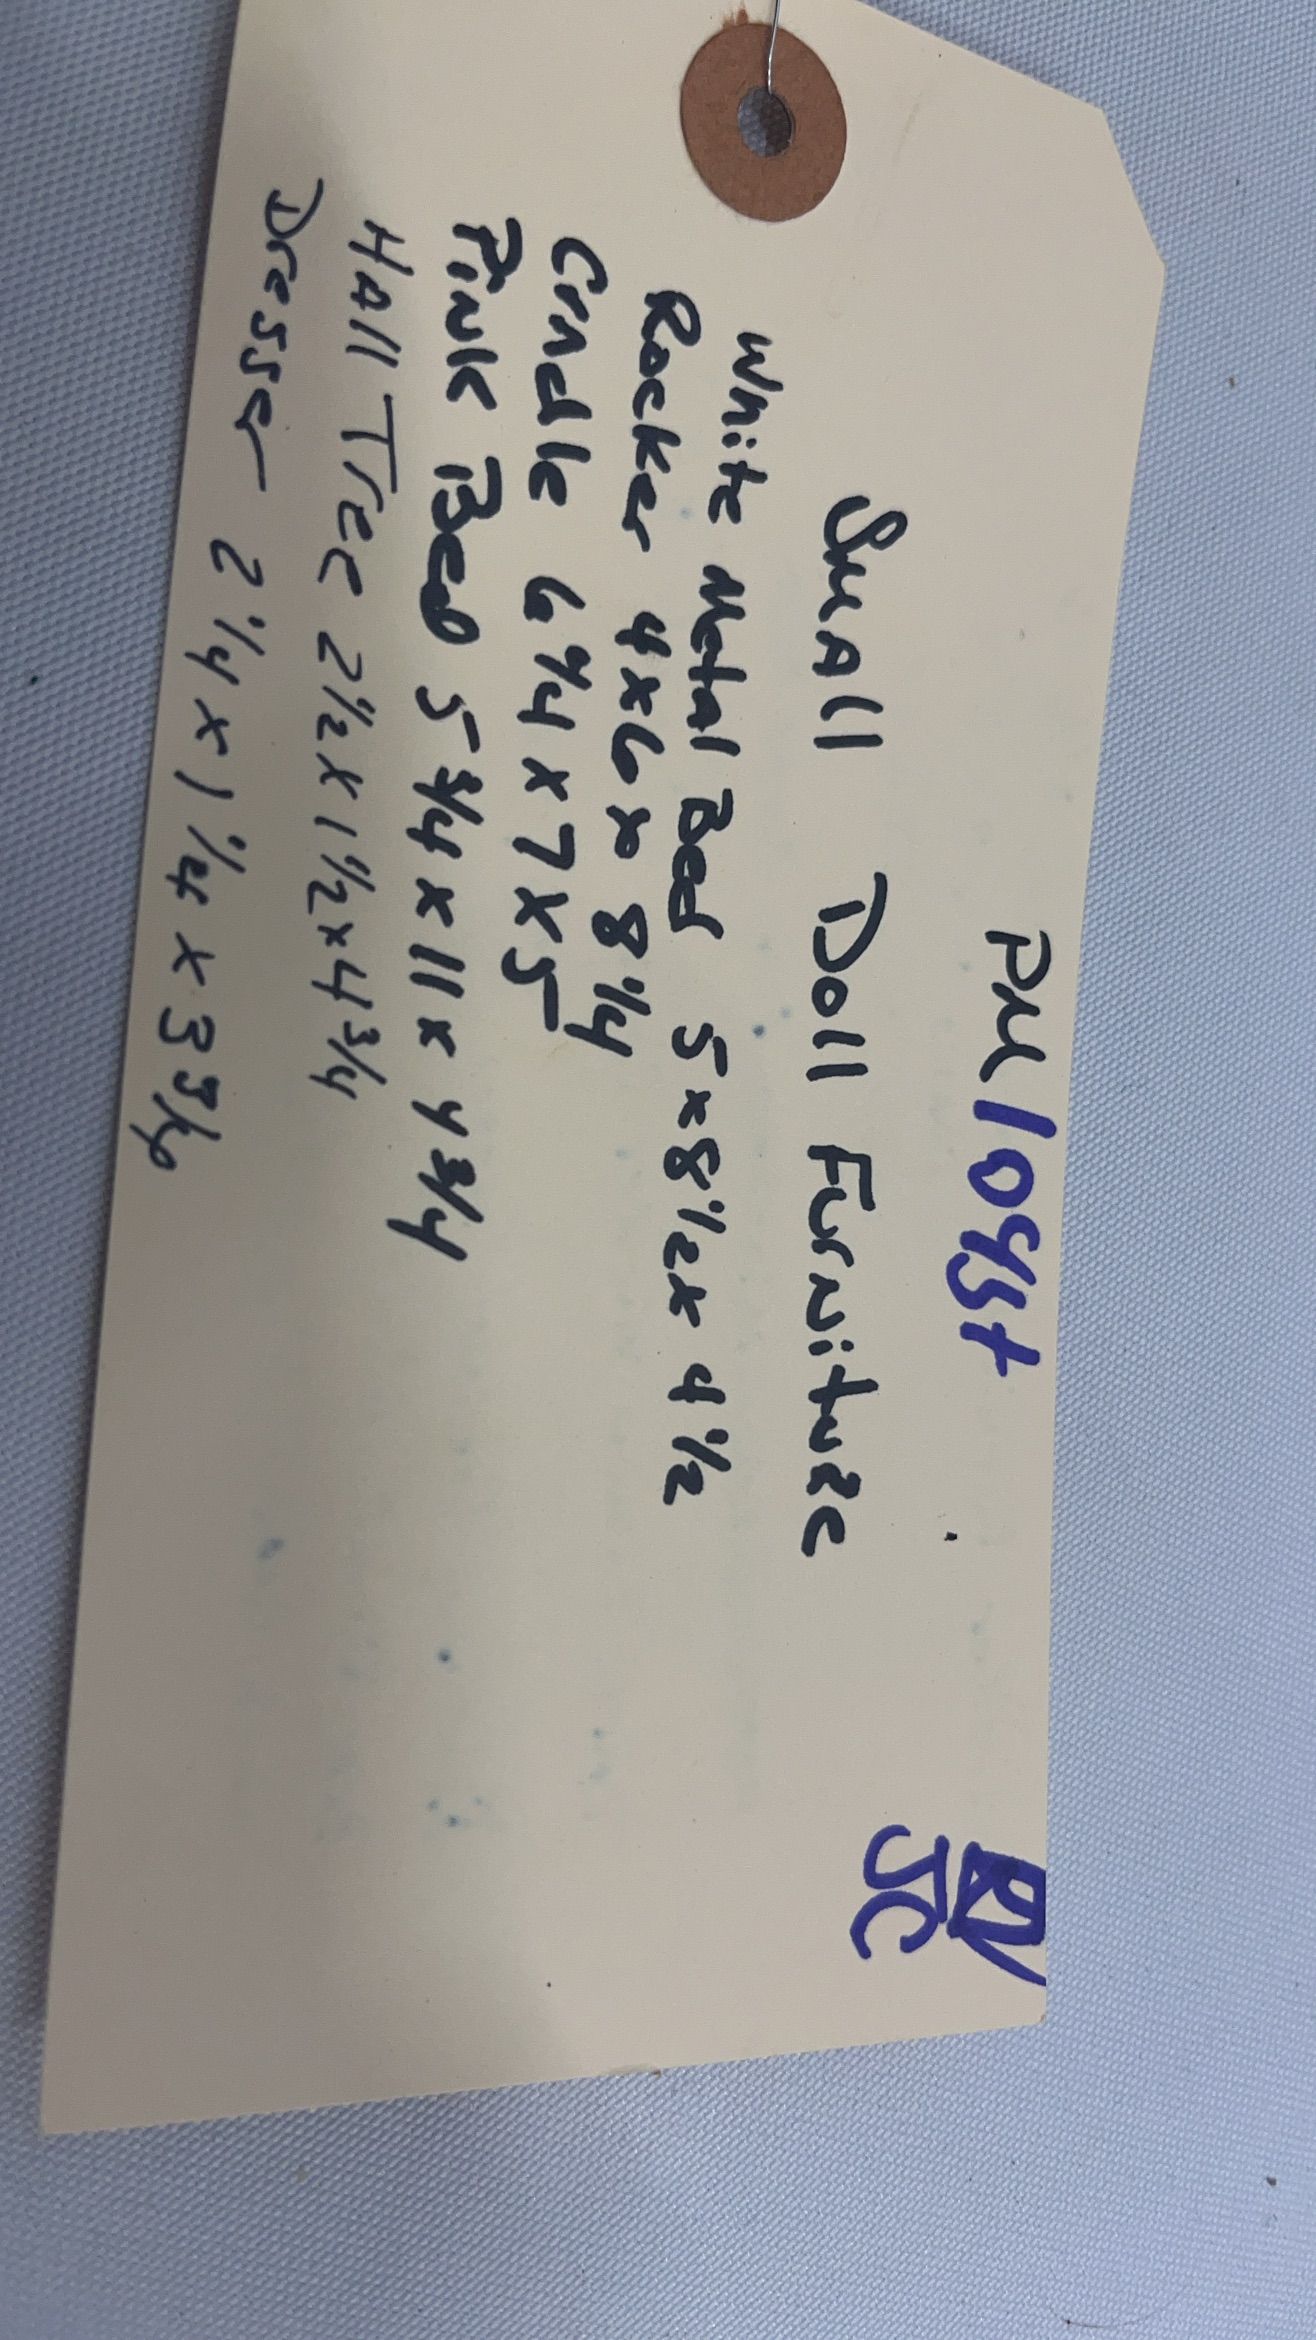 PM 1095t
JC
Small Doll Furniture
White Metal Bed 5 x 8 1/2 x 4 1/2
Rocker 4 x 6 x 8 1/4
Cradle 6 x 7 x 5
Pink Bed 5 3/4 x 11 x 4 3/4
Hall Tree 2 1/2 x 1 1/2 x 4 3/4
Dresser 2 1/4 x 1 1/4 x 3